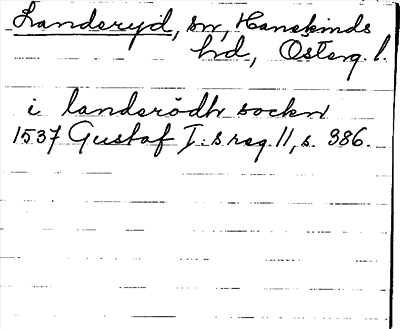 Landeryd, sn, Hanekinds
hd, Österg. l.
i landerödh sockn
1537 Gustaf I:s reg. 11, s. 386.